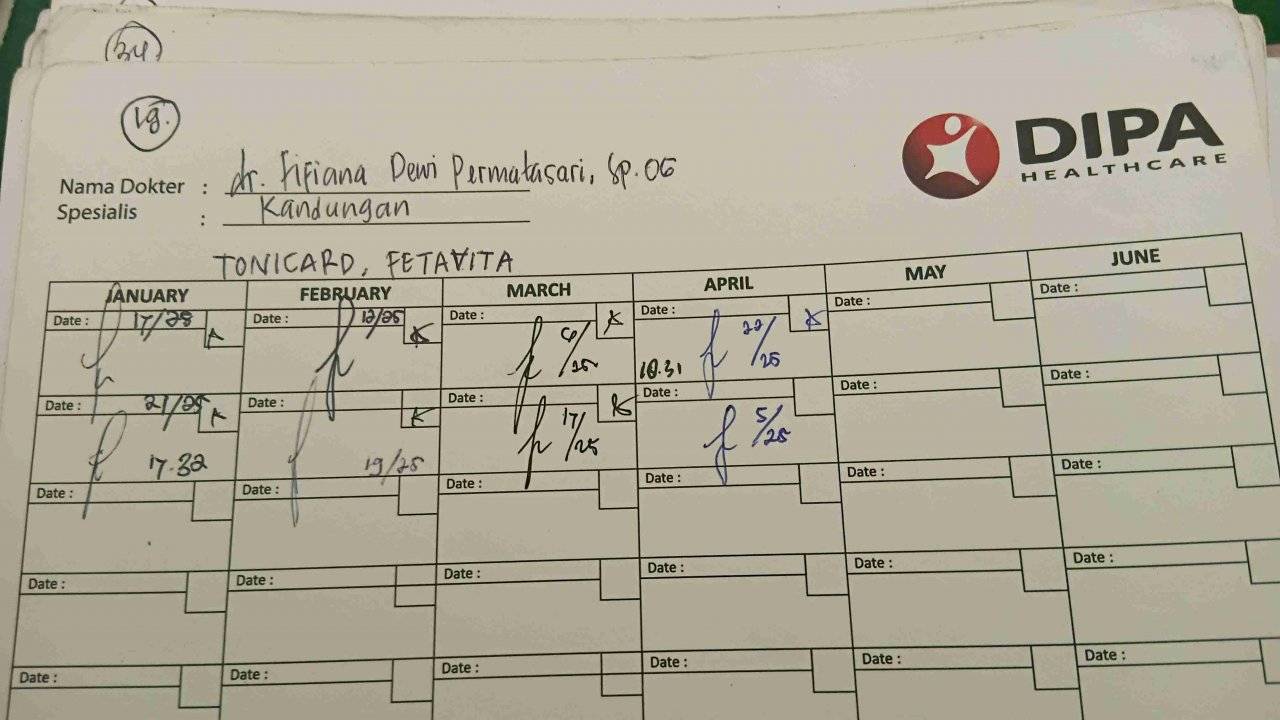 34
18.
DIPA
HEALTHCARE
Nama Dokter : dr. Fifiana Dewi Permatasari, Sp.OG
Spesialis : Kandungan
TONICARD, FETAVITA
JANUARY FEBRUARY MARCH APRIL MAY JUNE
Date : 17/25 Date : 12/25 Date : Date : Date : Date :
6/25 22/25
18.31
Date : 21/25 Date : Date : Date : Date : Date :
17.32 19/25 17/25 5/25
Date : Date : Date : Date : Date : Date :
Date : Date : Date : Date : Date : Date :
Date : Date : Date : Date : Date : Date :